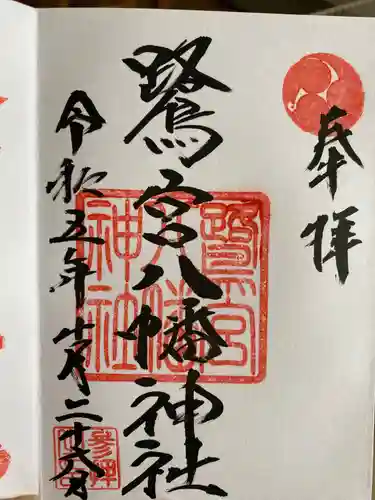 奉拝
鷺宮八幡神社
鷺宮八幡神社
令和五年
月二十八日
参拝